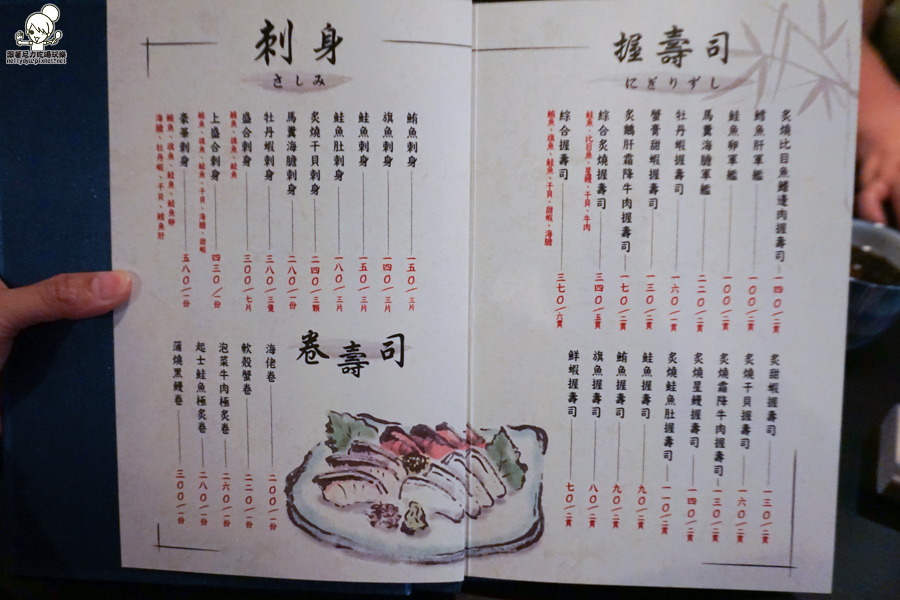 跟著尼力吃喝玩樂
握壽司
にぎりずし
炙燒比目魚鰭邊肉握壽司 一四〇/二貫
鱈魚肝軍艦 一〇〇/二貫
鮭魚卵軍艦 一〇〇/二貫
馬糞海膽軍艦 二二〇/二貫
牡丹蝦握壽司 一六〇/一貫
蟹膏甜蝦握壽司 一三〇/二貫
炙鵝肝霜降牛肉握壽司 一七〇/二貫
綜合炙燒握壽司 三四〇/五貫
鮭魚、比目魚、星鰻、干貝、牛肉
綜合握壽司 三七〇/六貫
鮪魚、旗魚、鮭魚、干貝、甜蝦、海膽
炙甜蝦握壽司 一三〇/二貫
炙燒干貝握壽司 一六〇/二貫
炙燒霜降牛肉握壽司 一三〇/二貫
炙燒星鰻握壽司 一四〇/二貫
炙燒鮭魚肚握壽司 一一〇/二貫
鮭魚握壽司 九〇/二貫
鮪魚握壽司 九〇/二貫
旗魚握壽司 八〇/二貫
鮮蝦握壽司 七〇/二貫
刺身
さしみ
鮪魚刺身 一五〇/三片
旗魚刺身 一四〇/三片
鮭魚刺身 一五〇/三片
鮭魚肚刺身 一八〇/三片
炙燒干貝刺身 二四〇/三顆
馬糞海膽刺身 二八〇/一份
牡丹蝦刺身 三八〇/三隻
盛合刺身 三〇〇/七片
鮪魚、旗魚、鮭魚
上盛合刺身 四三〇/一份
鮪魚、旗魚、鮭魚、干貝、海膽、甜蝦
豪華刺身 五八〇/一份
鮪魚、旗魚、鮭魚、鮭魚卵
海膽、牡丹蝦、干貝、鱈魚肝
卷壽司
海佬卷 二〇〇/一份
軟殼蟹卷 二二〇/一份
泡菜牛肉極炙卷 二六〇/一份
起士鮭魚極炙卷 二八〇/一份
蒲燒黑鰻卷 三〇〇/一份